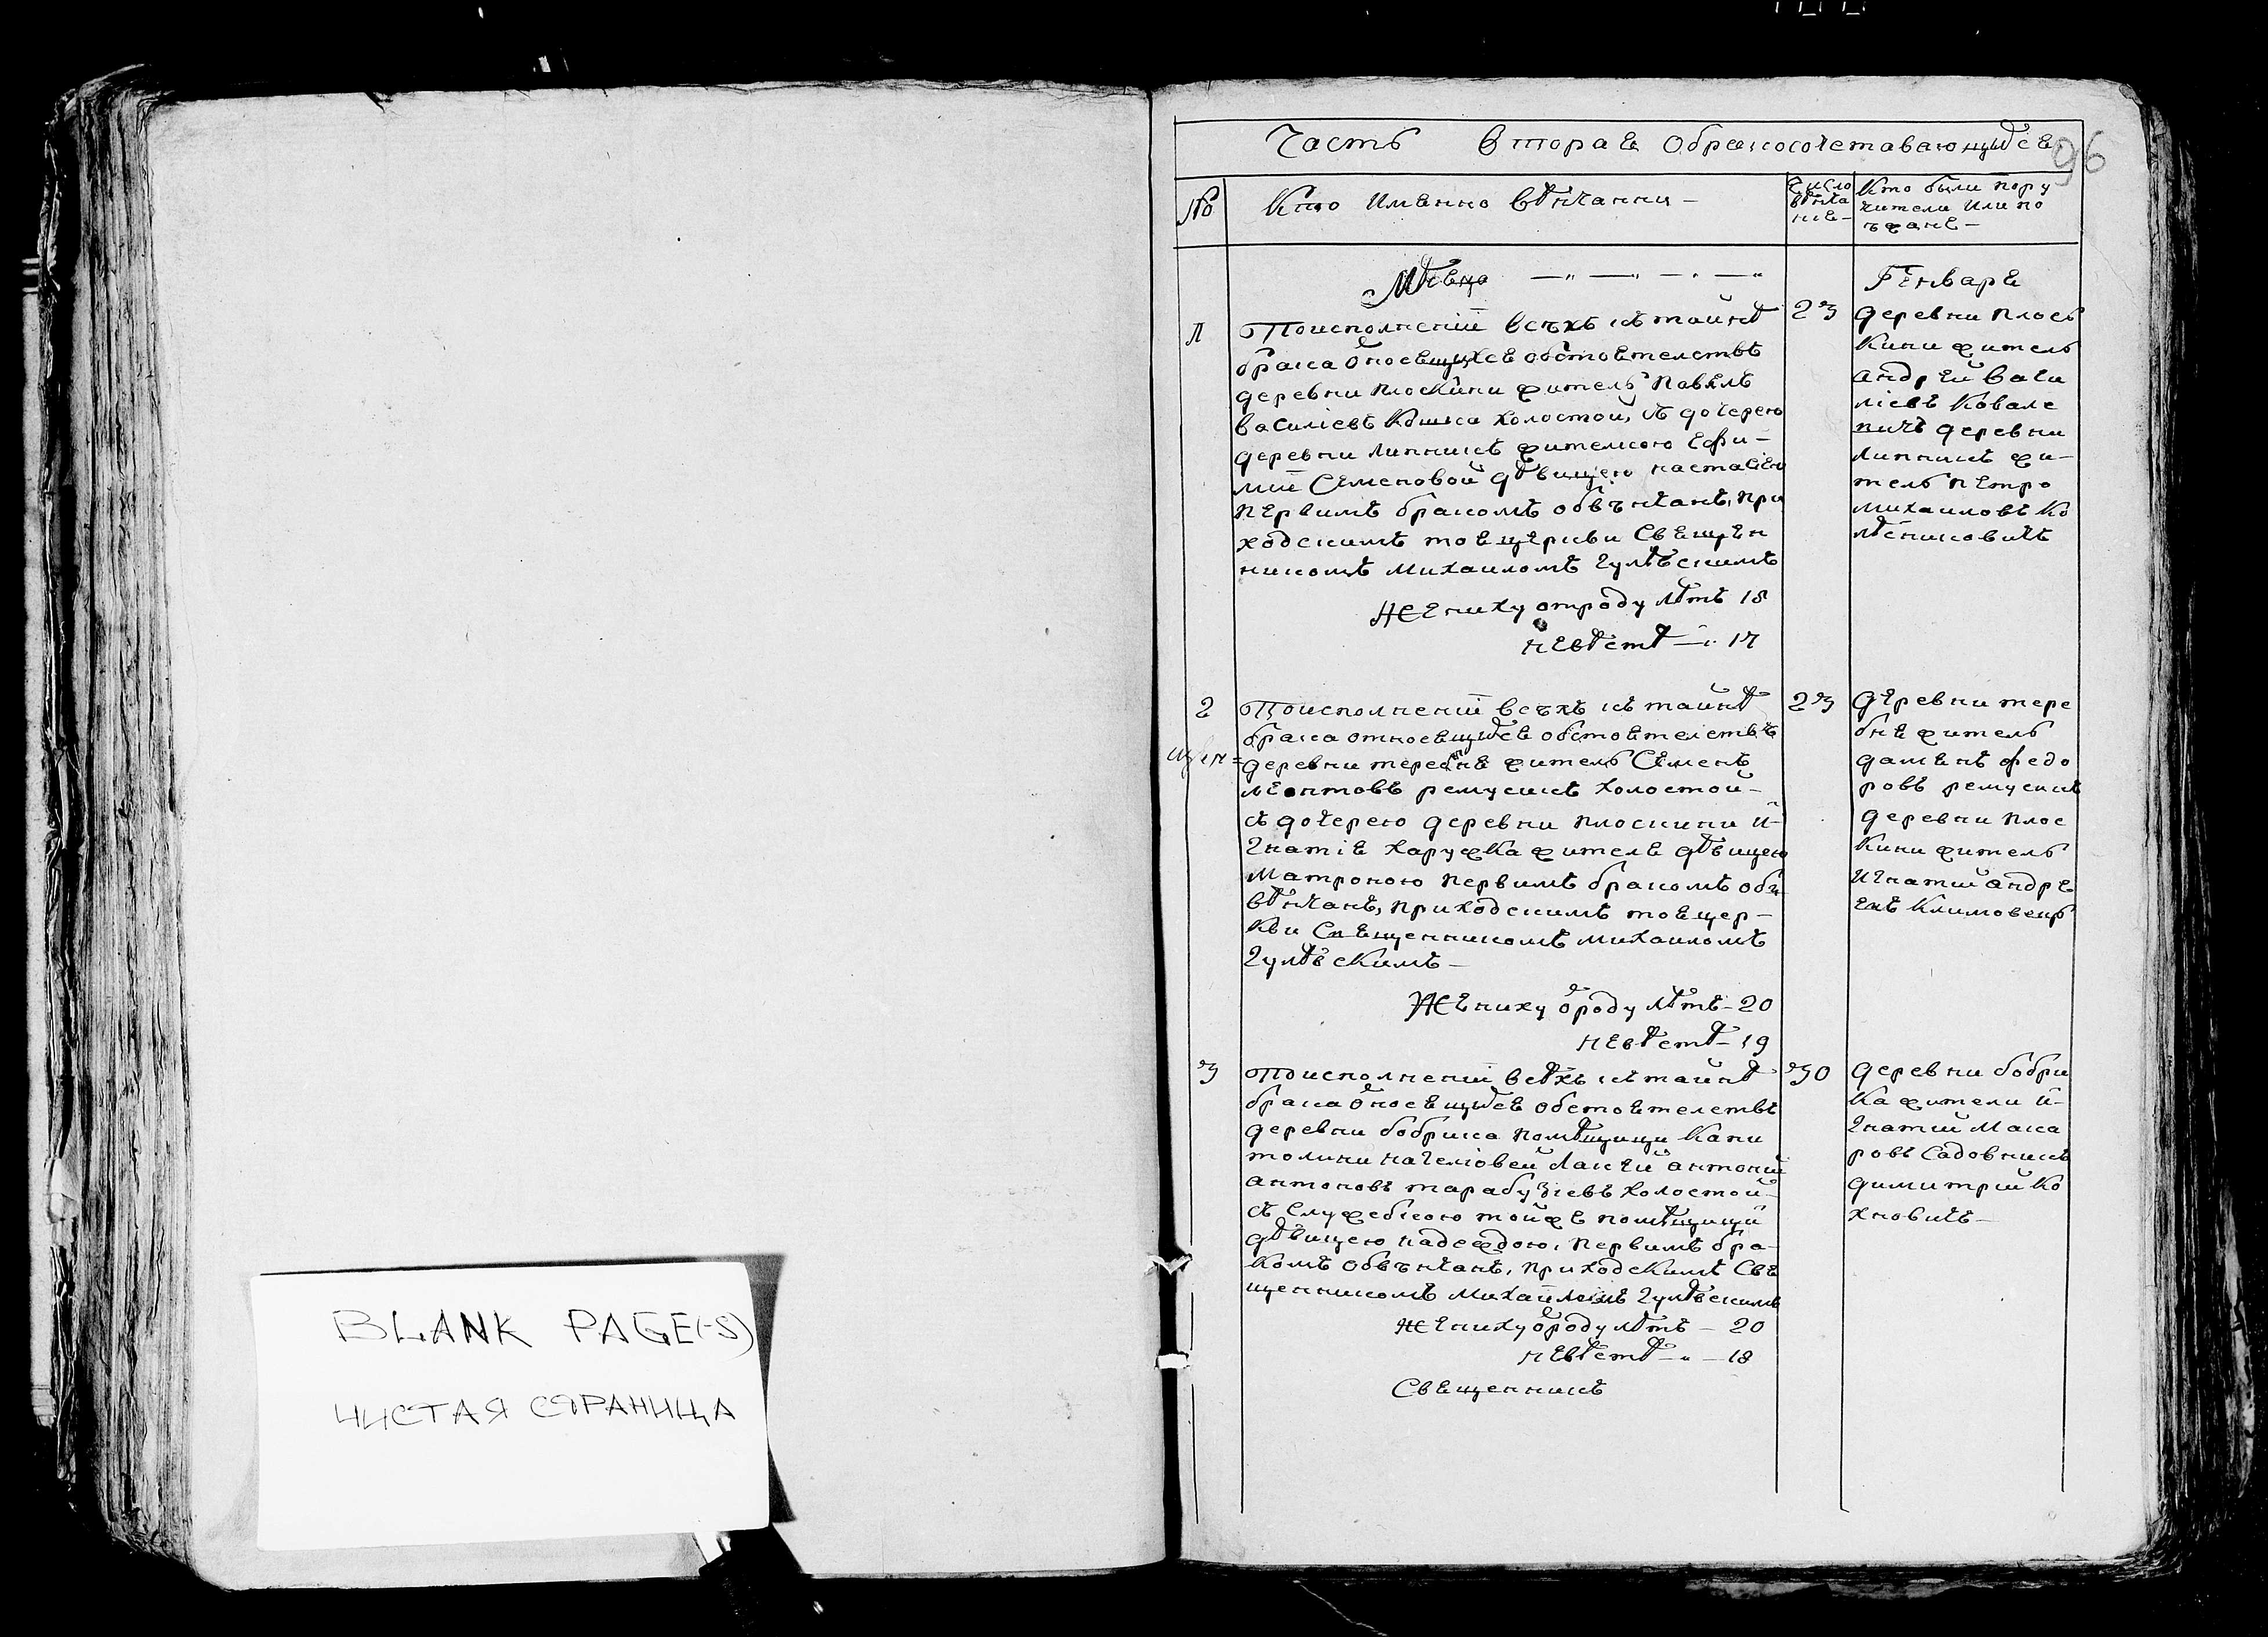 BLANK PAGE(-S)
ЧИСТАЯ СТРАНИЦА
96
Часть втораѧ обракосочетавающихсѧ
№
Кто имѧнно вѣнчанни —
число
вѣнча
ниѧ —
Кто были пору
чители или по
ѣзжанѣ —
Мѣсѧца
Генварѧ
1
Поисполнении всѣхъ къ тайнѣ
брака относѧщихсѧ обстоѧтелствъ
деревни Плоскини житель Павелъ
Василіевъ Кошка холостой, съ дочерею
деревни Липникъ жителкою Ефи-
міи Семеновой дѣвицею Настасіею
первимъ бракомъ обвѣнчанъ, при
ходскимъ тоѧ церкви свѧщен
никомъ Михаиломъ Гулѣвскимъ
Жениху отроду лѣтъ 18
невѣстѣ — 17
23
деревни Плось
кини житель
Андрей Васи
ліевъ Ковале
вичъ деревни
Липникъ жи-
тель Петро
Михаиловъ Ко
лѣсниковичъ
2
Поисполнении всѣхъ къ тайнѣ
брака относѧщихсѧ обстоѧтелствъ
деревни Теребнѣ житель Семенъ
Леонтовъ Ремускъ холостой —
съ дочерею деревни Плоскини И-
гнатіѧ Харужка жителѧ дѣвицею
Матроною первимъ бракомъ объ
вѣнчанъ, приходскимъ тоѧ цер-
кви свѧщенникомъ Михаиломъ
Гулѣвскимъ —
Жениху отроду лѣтъ — 20
невѣстѣ — 19
23
деревни Тере
бнѧ житель
Дамѧнъ Федо
ровъ Ремускъ
деревни Плос
кини житель
Игнатій Андре
евъ Климовецъ
3
Поисполнении всѣхъ къ тайнѣ
брака относѧщихсѧ обстоѧтелствъ
деревни Бобрика помѣщици Капи
толини Качеловей лакей Антоній
Антоновъ Тарабузіевъ холостой —
съ служебкою тойжѧ помѣщици
дѣвицею Надеждою, первимъ бра-
комъ обвѣнчанъ, приходскимъ свѧ
щенникомъ Михаиломъ Гулѣвскимъ
Жениху отроду лѣтъ — 20
невѣстѣ — 18
Свѧщенникъ
30
деревни Бобри
ка жители И-
гнатій Мака
ровъ Садовникъ
Димитрій Ко
хновичъ —